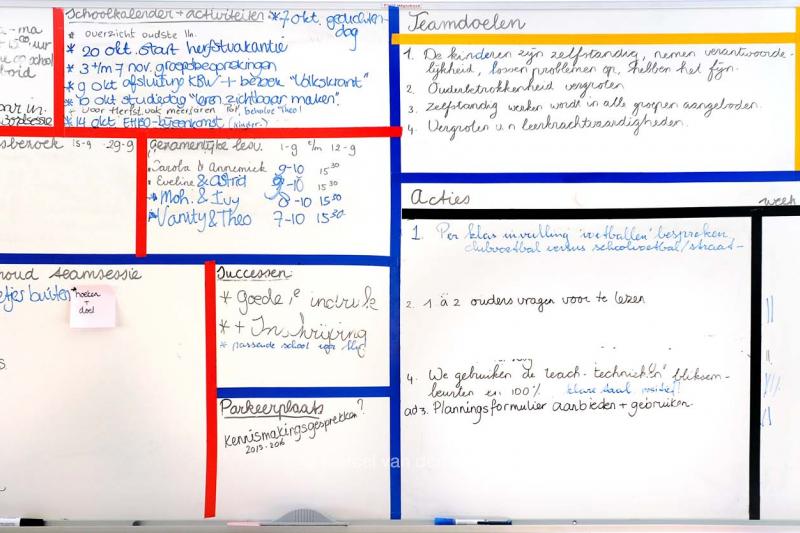 Schoolkalender + activiteiten
*7 okt. gedichten-
dag
* overzicht oudste lln.
* 20 okt. start herfstvakantie
* 3 + /m 7 nov. groepsbesprekingen
* 9 okt afsluiting KBW + bezoek "Volkskrant"
* 10 okt studiedag "leren zichtbaar maken".
* 14 okt. EHBO-bijeenkomst
- ma
uur
op school
in.
sbezoek 15-9 29-9
Gezamenlijke lesv. 1-9 t/m 12-9
Carola & Annemiek 9-10 15³⁰
Eveline & Astrid 9-10 15³⁰
* Moh. & Ivy 8-10 15³⁰
* Vanity & Theo 7-10 15³⁰
houd teamsessie
etjes buiten
* hoeken
+
doel
Successen
* Goede 1e indruk
* + Inschrijving
* passende school voor
Parkeerplaats
Kennismakingsgesprekken?
2015-2016
Teamdoelen
1. De kinderen zijn zelfstandig, nemen verantwoorde-
lijkheid, lossen problemen op, & hebben het fijn.
2. Ouderbetrokkenheid vergroten
3. Zelfstandig werken wordt in alle groepen aangeboden.
4. Vergroten v.n leerkrachtvaardigheden.
Acties
week
1. Per klas invulling 'voetballen' bespreken
clubvoetbal versus schoolvoetbal/straat-
2. 1 à 2 ouders vragen voor te lezen
4. We gebruiken de teach-technieken' bliksem-
beurten en 100% klare taal positief!
ad 3. Planningsformulier aanbieden + gebruiken.